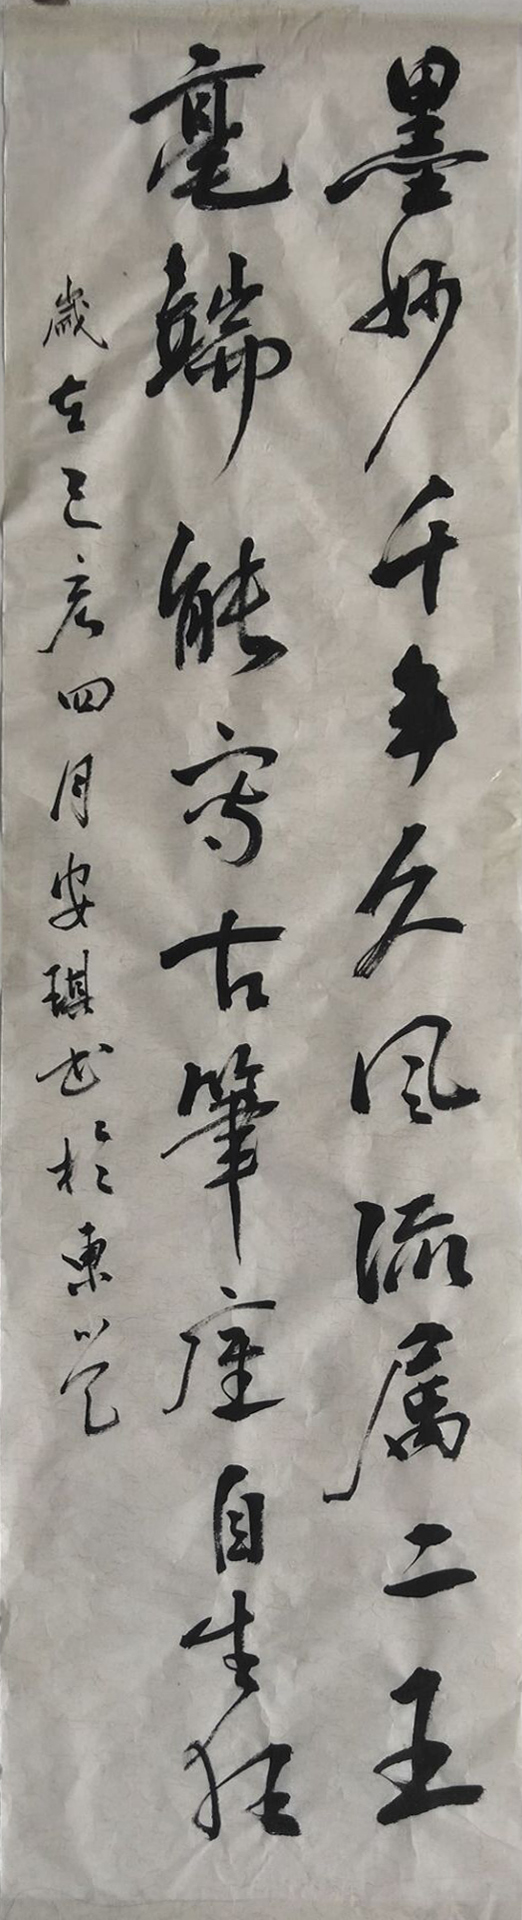 墨妙千年久风流属二王
毫端能寫古筆座自生狂
歲在己亥四月安琪书於東營